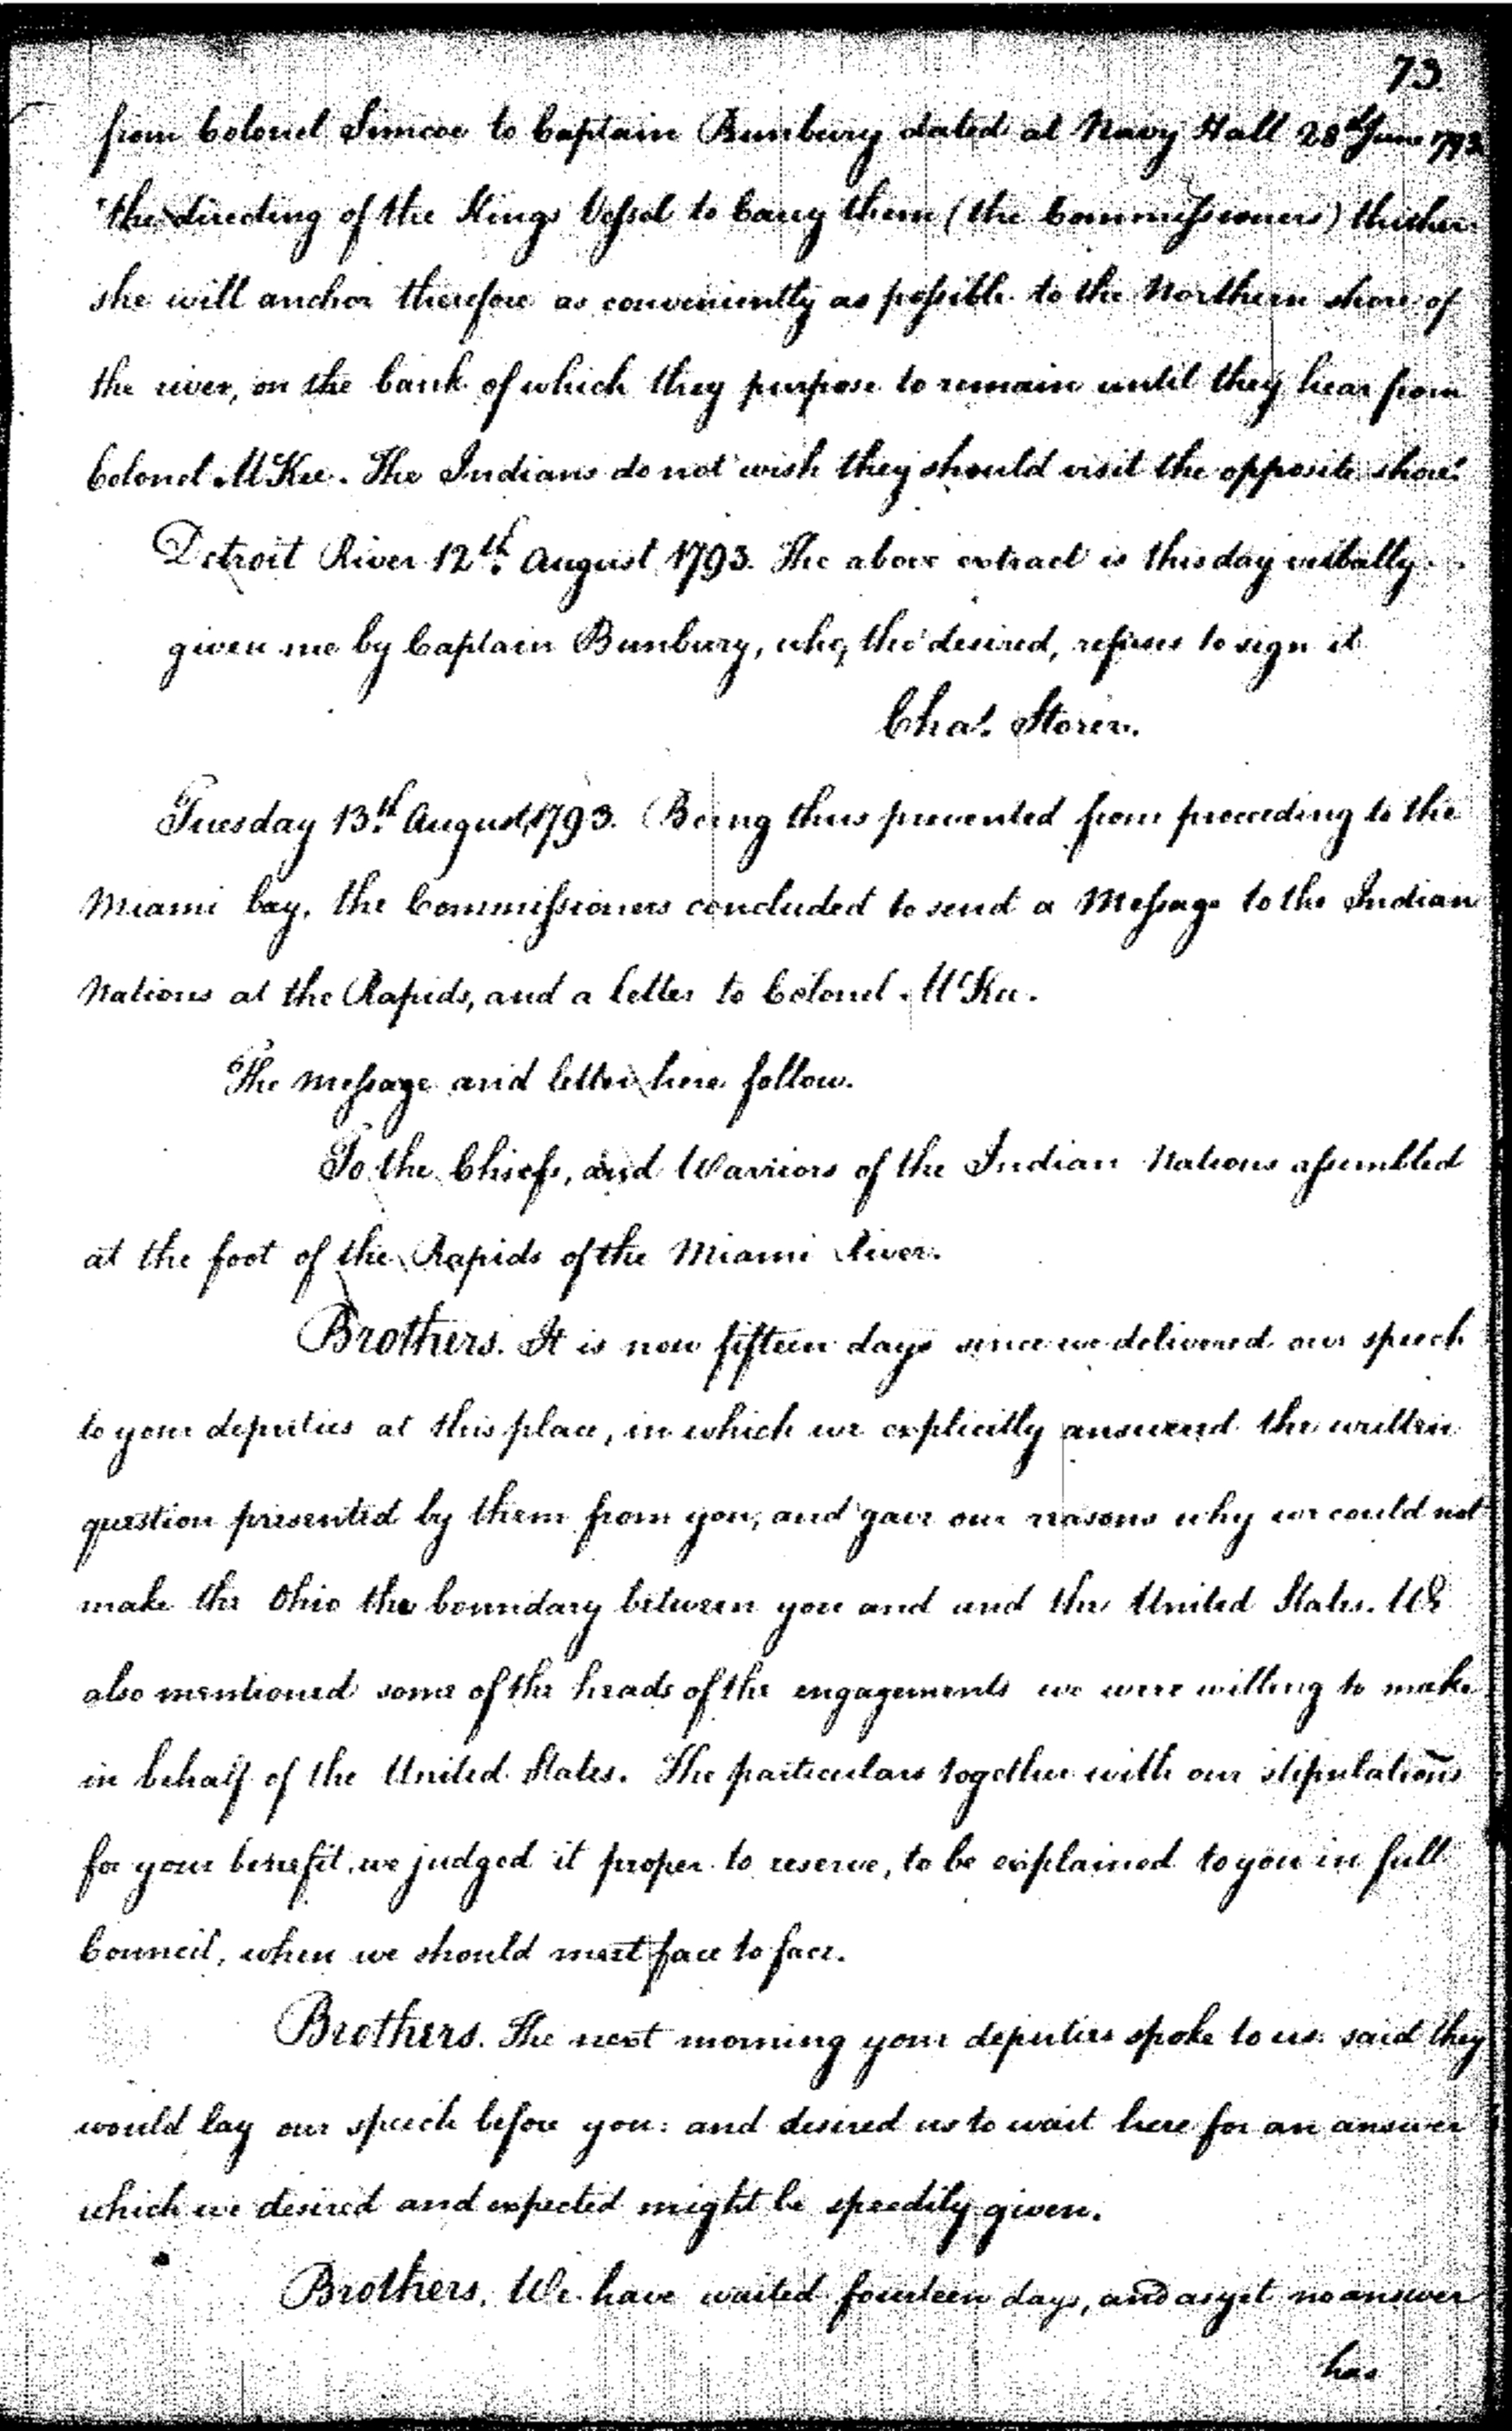 73
from Colonel Simcoe to Captain Bunbury dated at Navy Hall 28th June 1793
"the directing of the Kings Vessel to Carry them (the Commissioners) thither
she will anchor therefore as conveniently as possible to the Northern shore of
the river, on the bank of which they purpose to remain until they hear from
Colonel McKee. The Indians do not wish they should visit the opposite shore"
Detroit River 12th August 1793. The above extract is this day verbally
given me by Captain Bunbury, who, tho' desired, refuses to sign it
Chas. Storer.
Tuesday 13th August, 1793. Being thus prevented from proceeding to the
Miami bay, the Commissioners concluded to send a Message to the Indian
Nations at the Rapids, and a letter to Colonel McKee.
The message and letter here follow.
To the Chiefs, and Warriors of the Indian Nations assembled
at the foot of the Rapids of the Miami River.
Brothers. It is now fifteen days since we delivered our speech
to your deputies at this place, in which we explicitly answered the written
question presented by them from you, and gave our reasons why we could not
make the Ohio the boundary between you and and the United States. We
also mentioned some of the heads of the engagements we were willing to make
in behalf of the United States. The particulars together with our stipulations
for your benefit, we judged it proper to reserve, to be explained to you in full
Council, when we should meet face to face.
Brothers. The next morning your deputies spoke to us: said they
would lay our speech before you: and desired us to wait here for an answer
which we desired and expected might be speedily given.
Brothers. We have waited fourteen days, and as yet no answer
has